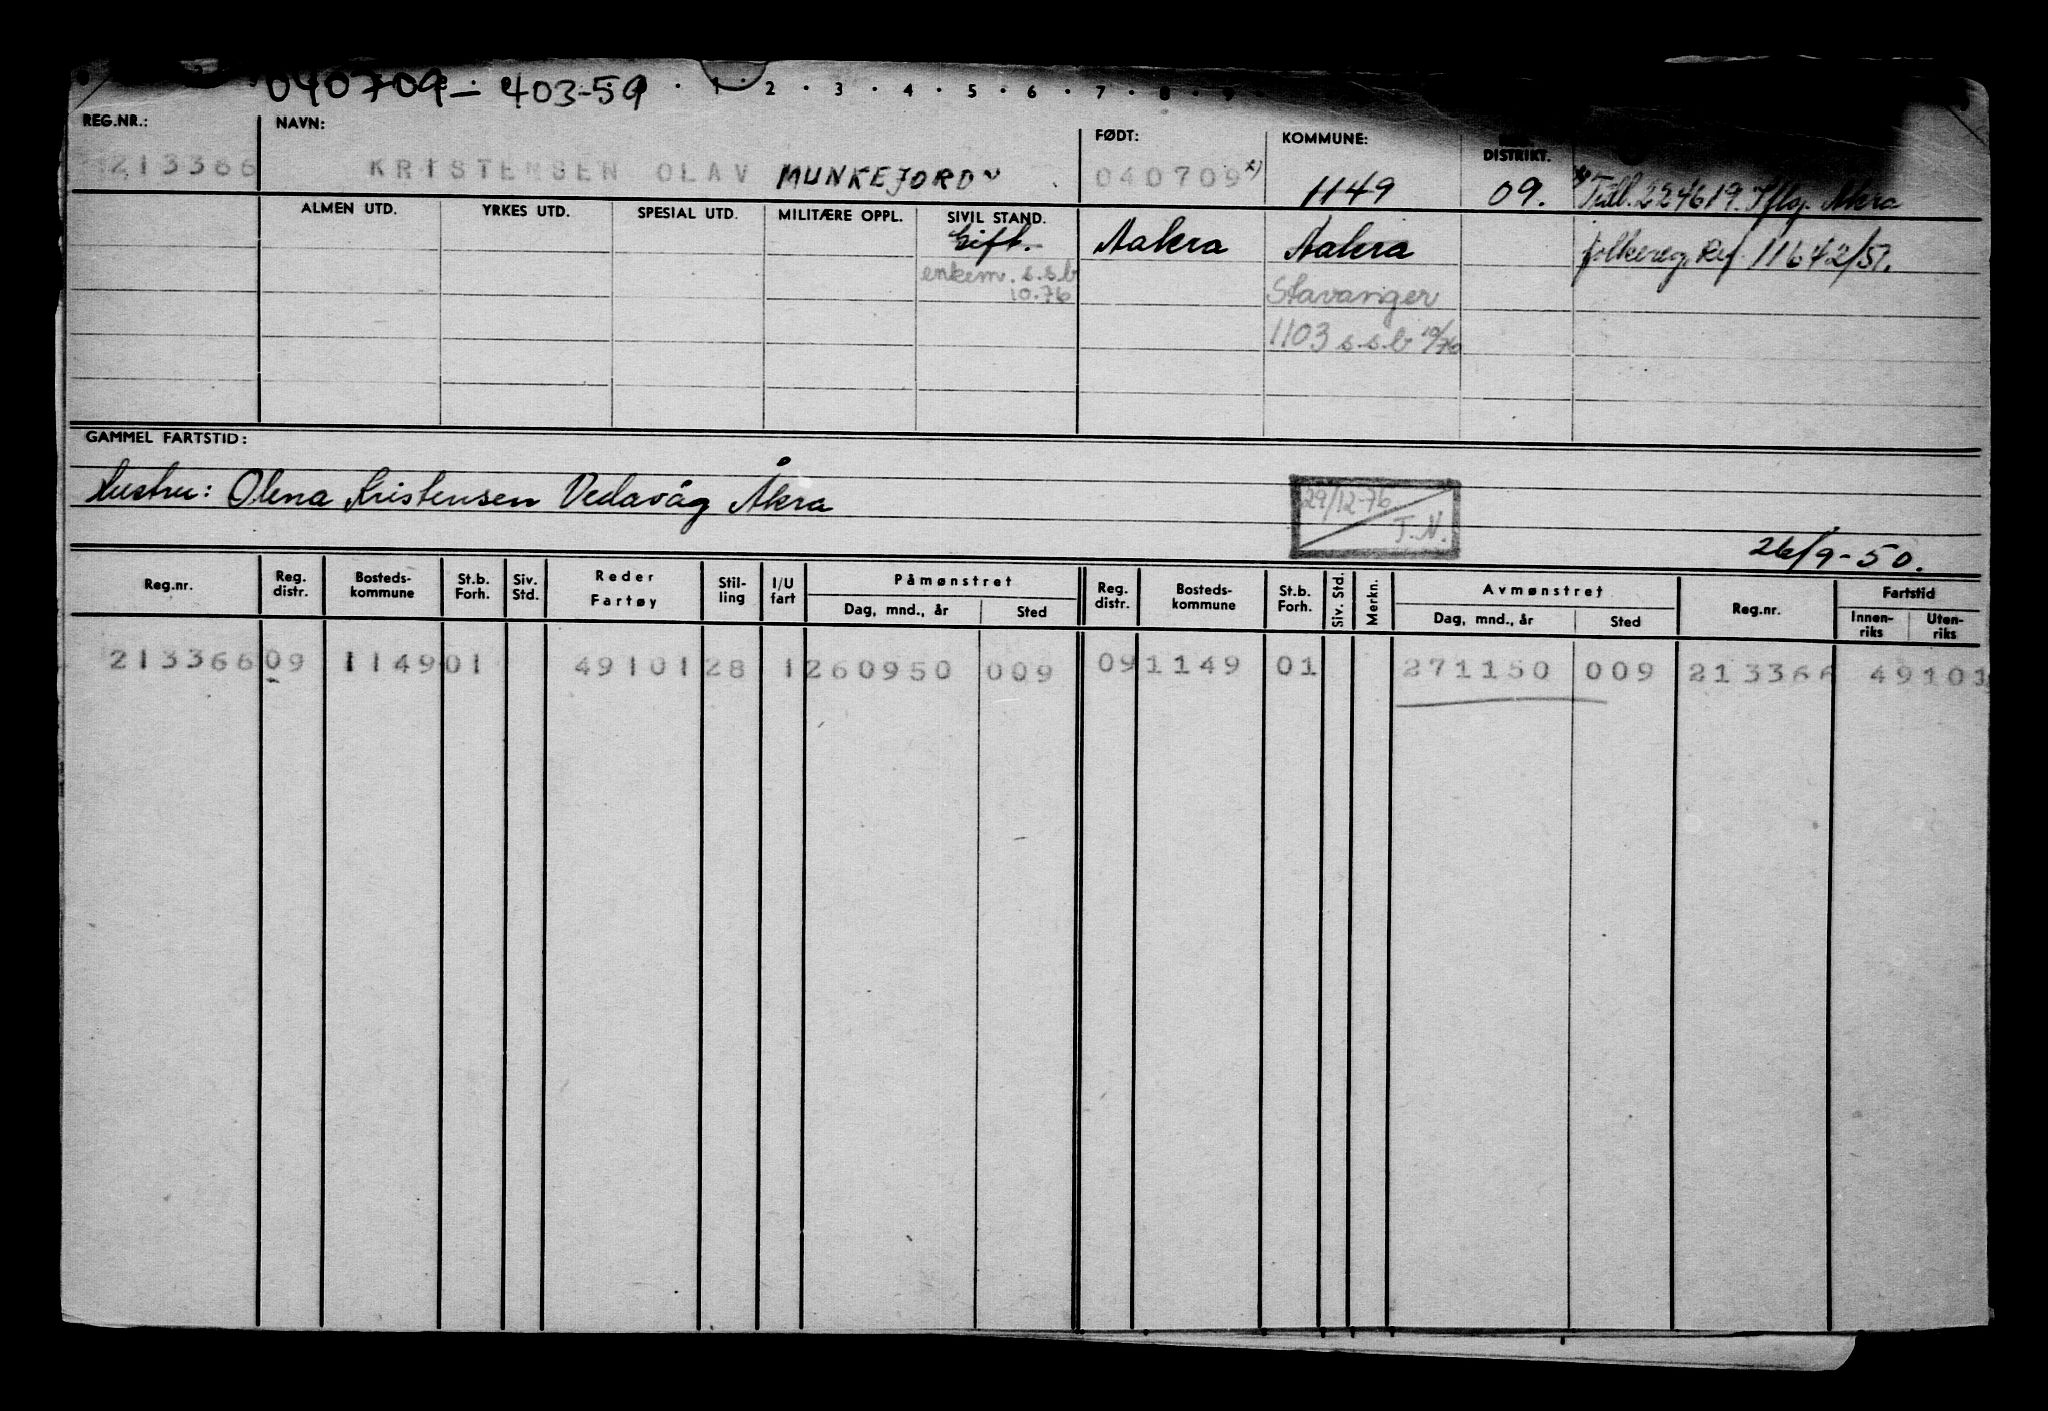 040709 - 403-59
1 · 2 · 3 · 4 · 5 · 6 · 7 · 8 · 9 ·
REG.NR.: NAVN: FØDT: KOMMUNE: DISTRIKT.
213366 KRISTENSEN OLAV MUNKEJORD 040709 x) 1149 09. x) Tidl. 224619. Iflg. Akra
ALMEN UTD. YRKES UTD. SPESIAL UTD. MILITÆRE OPPL. SIVIL STAND.
Gift. Aakra Aakra folkereg. Ref. 11642/51.
enkem. s.s.b Stavanger
10.76
1103 s.s.b 10/76
GAMMEL FARTSTID:
Hustru: Olena Kristensen Vedavåg Åkra
29/12-76
T.N.
26/9-50.
Reg.nr. Reg. distr. Bosteds-kommune St.b. Forh. Siv. Std. Reder Fartøy Stil-ling I/U fart Påmønstret Dag, mnd., år Sted Reg. distr. Bosteds-kommune St.b. Forh. Siv. Std. Merkn. Avmønstret Dag, mnd., år Sted Reg.nr. Fartstid Innen-riks Uten-riks
213366 09 1149 01 49101 28 1 260950 009 09 1149 01 271150 009 213366 49101